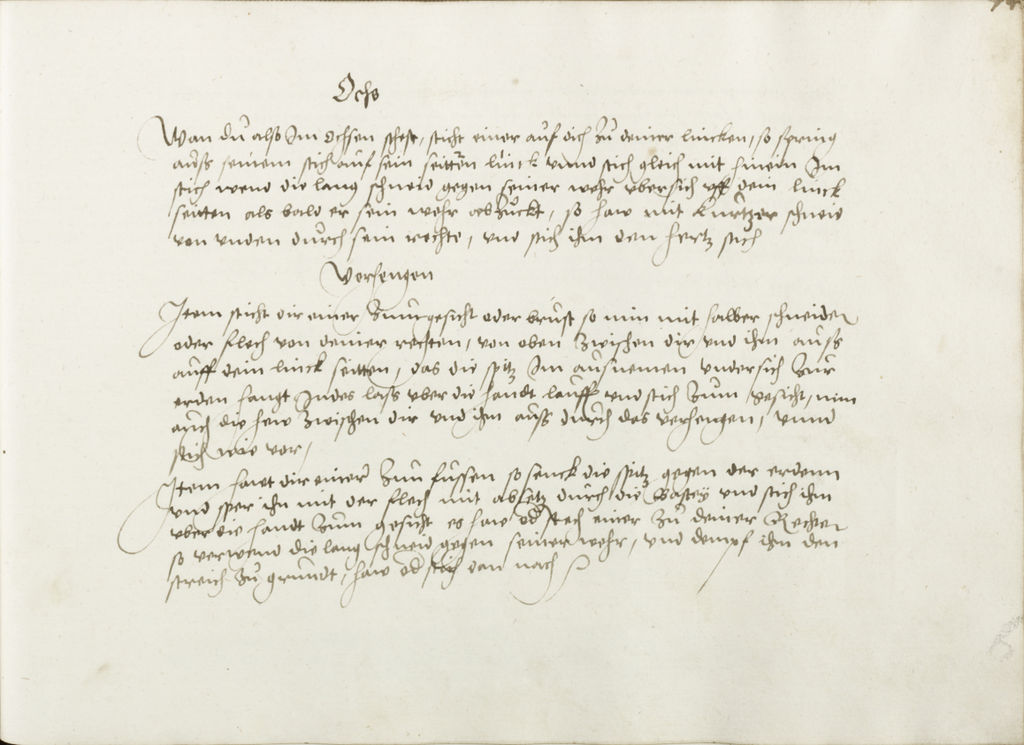 Ochs
Wan du also Im ochsen stehst, sticht einer auf dich zu deiner lincken, so spring
auss seinem stich auf sein seitten linck vnnd stich gleich mit hinein Im
stich wend die lang schneid gegen seiner wehr vbersich vff dein linck
seitten als bald er sein wehr abzuckt, so haw mit kurtzer schneid
von vnden durch sein rechte, vnd stich ihm den hertz stich
Verhengen
Item sticht dir einer zum gesicht oder brust so nim mit halber schneiden
oder flech von deiner rechten, von oben zwischen dir vnd ihm auss
auff dein linck seitten, das die spitz Im ausnemen vndersich zur
erden hangt Indes lass vber die handt lauff vnd stich zum gesicht, nim
auch die hew zwischen dir vnd ihm auss durch das verhengen, vnnd
stich wie vor,
Item hawt dir einer zun fussen so senck die spitz gegen der erdenn
vnd sper ihn mit der flech mit absetz durch die Bastey vnd stich ihm
vber die handt zum gesicht es haw od stech einer zu deiner Rechten
so verwend die lang schneid gegen seiner wehr, vnd dempf ihn den
streich zu grundt, haw od stich dan nach